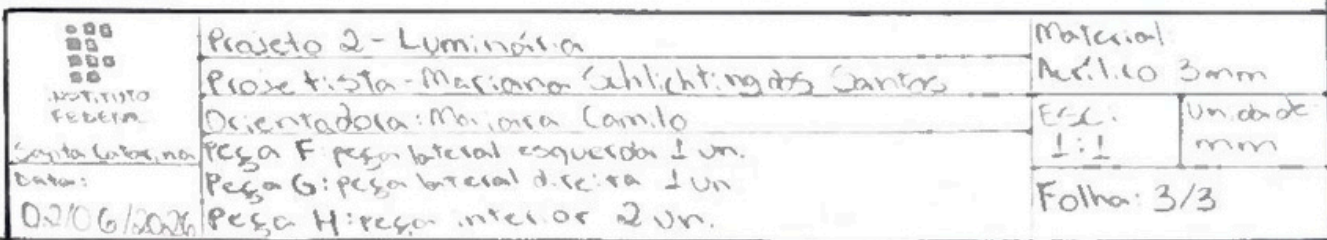 INSTITUTO
FEDERAL
Santa Catarina
Data:
02/06/2026
Projeto 2 - Luminária
Projetista - Mariana Schlichting dos Santos
Orientadora: Maiara Camilo
Peça F: peça lateral esquerda 1 un.
Peça G: peça lateral direita 1 un
Peça H: peça interior 2 un.
Material
Acrílico 3mm
ESC:
1:1
Unidade
mm
Folha: 3/3